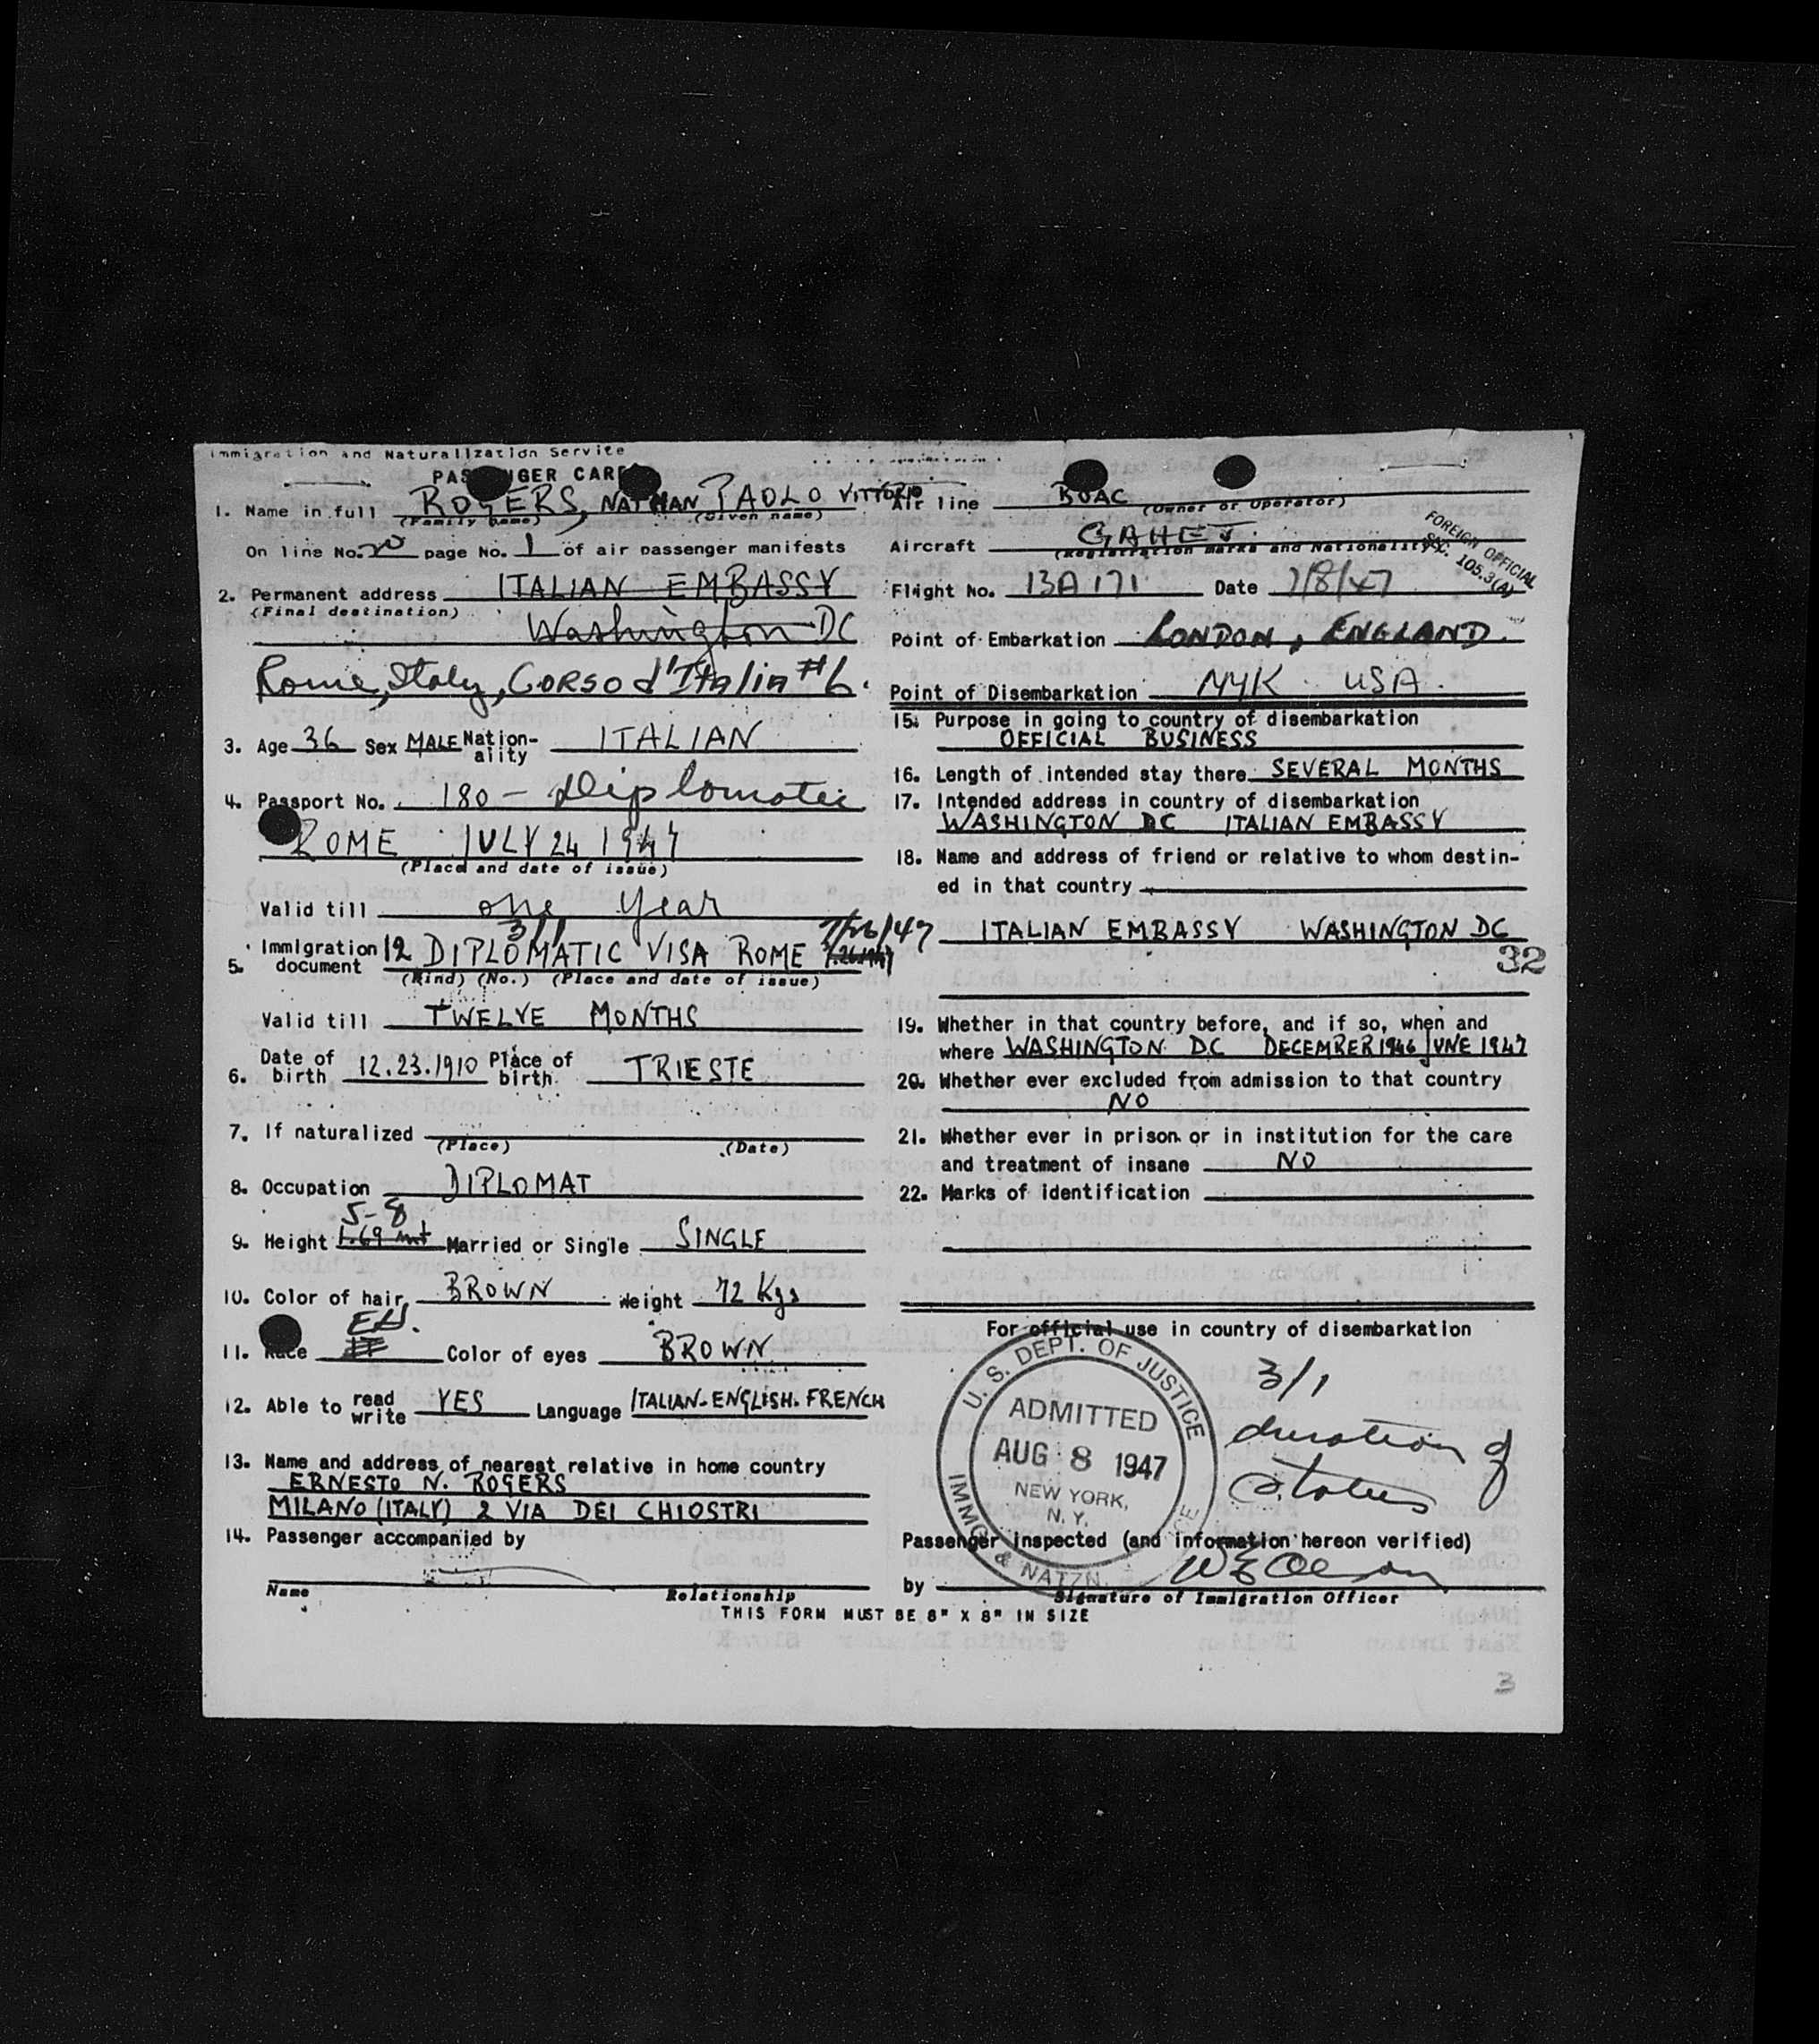 Immigration and Naturalization Service
PASSENGER CARD
1. Name in full ROGERS, NATHAN PAOLO VITTORIO
(Family name) (Given name)
On line No. 20 page No. 1 of air passenger manifests
2. Permanent address ITALIAN EMBASSY
(Final destination)
Washington DC
Rome, Italy, CORSO d'Italia #6.
3. Age 36 Sex MALE Nationality ITALIAN
4. Passport No. 180 - Diplomatic
ROME JULY 24 1947
(Place and date of issue)
Valid till one year
3/1 7/26/47
5. Immigration document 12 DIPLOMATIC VISA ROME 7.26.1947
(Kind) (No.) (Place and date of issue)
Valid till TWELVE MONTHS
6. Date of birth 12.23.1910 Place of birth TRIESTE
7. If naturalized
(Place) (Date)
8. Occupation DIPLOMAT
5-8
9. Height 1.69 mt Married or Single SINGLE
10. Color of hair BROWN Weight 72 Kgs
11. Race Color of eyes BROWN
12. Able to read write YES Language ITALIAN-ENGLISH-FRENCH
13. Name and address of nearest relative in home country
ERNESTO N. ROGERS
MILANO (ITALY) 2 VIA DEI CHIOSTRI
14. Passenger accompanied by
Name Relationship
Air line BOAC
(Owner or Operator)
Aircraft GAHEJ
(Registration marks and Nationality)
FOREIGN OFFICIAL
SEC. 105.3(A)
Flight No. BA 171 Date 7/8/47
Point of Embarkation LONDON, ENGLAND.
Point of Disembarkation NYK USA.
15. Purpose in going to country of disembarkation
OFFICIAL BUSINESS
16. Length of intended stay there SEVERAL MONTHS
17. Intended address in country of disembarkation
WASHINGTON DC ITALIAN EMBASSY
18. Name and address of friend or relative to whom destin-
ed in that country
ITALIAN EMBASSY WASHINGTON DC
32
19. Whether in that country before, and if so, when and
where WASHINGTON DC DECEMBER 1946 JUNE 1947
20. Whether ever excluded from admission to that country
NO
21. Whether ever in prison or in institution for the care
and treatment of insane NO
22. Marks of identification
For official use in country of disembarkation
U. S. DEPT. OF JUSTICE
ADMITTED
AUG 8 1947
NEW YORK,
N. Y.
IMMG & NATZN.
3/1
duration of
status
Passenger inspected (and information hereon verified)
by
Signature of Immigration Officer
THIS FORM MUST BE 8" X 8" IN SIZE
3